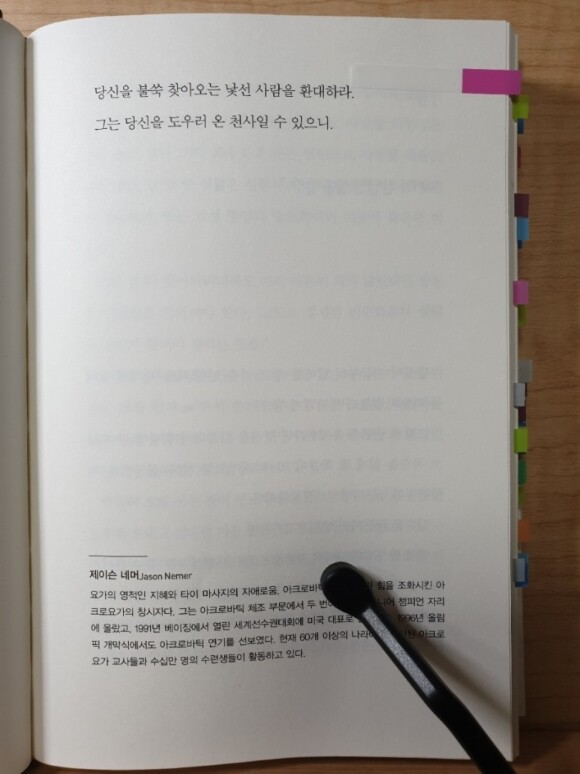 당신을 불쑥 찾아오는 낯선 사람을 환대하라.
그는 당신을 도우러 온 천사일 수 있으니.
제이슨 네머Jason Nemer
요가의 영적인 지혜와 타이 마사지의 자애로움, 아크로바틱 힘을 조화시킨 아
크로요가의 창시자다. 그는 아크로바틱 체조 부문에서 두 번 챔피언 자리
에 올랐고, 1991년 베이징에서 열린 세계선수권대회에 미국 대표로 1996년 올림
픽 개막식에서도 아크로바틱 연기를 선보였다. 현재 60개 이상의 아크로
요가 교사들과 수십만 명의 수련생들이 활동하고 있다.